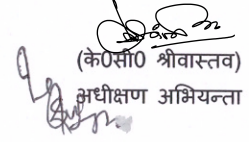 (के0सी0 श्रीवास्तव)
अधीक्षण अभियन्ता